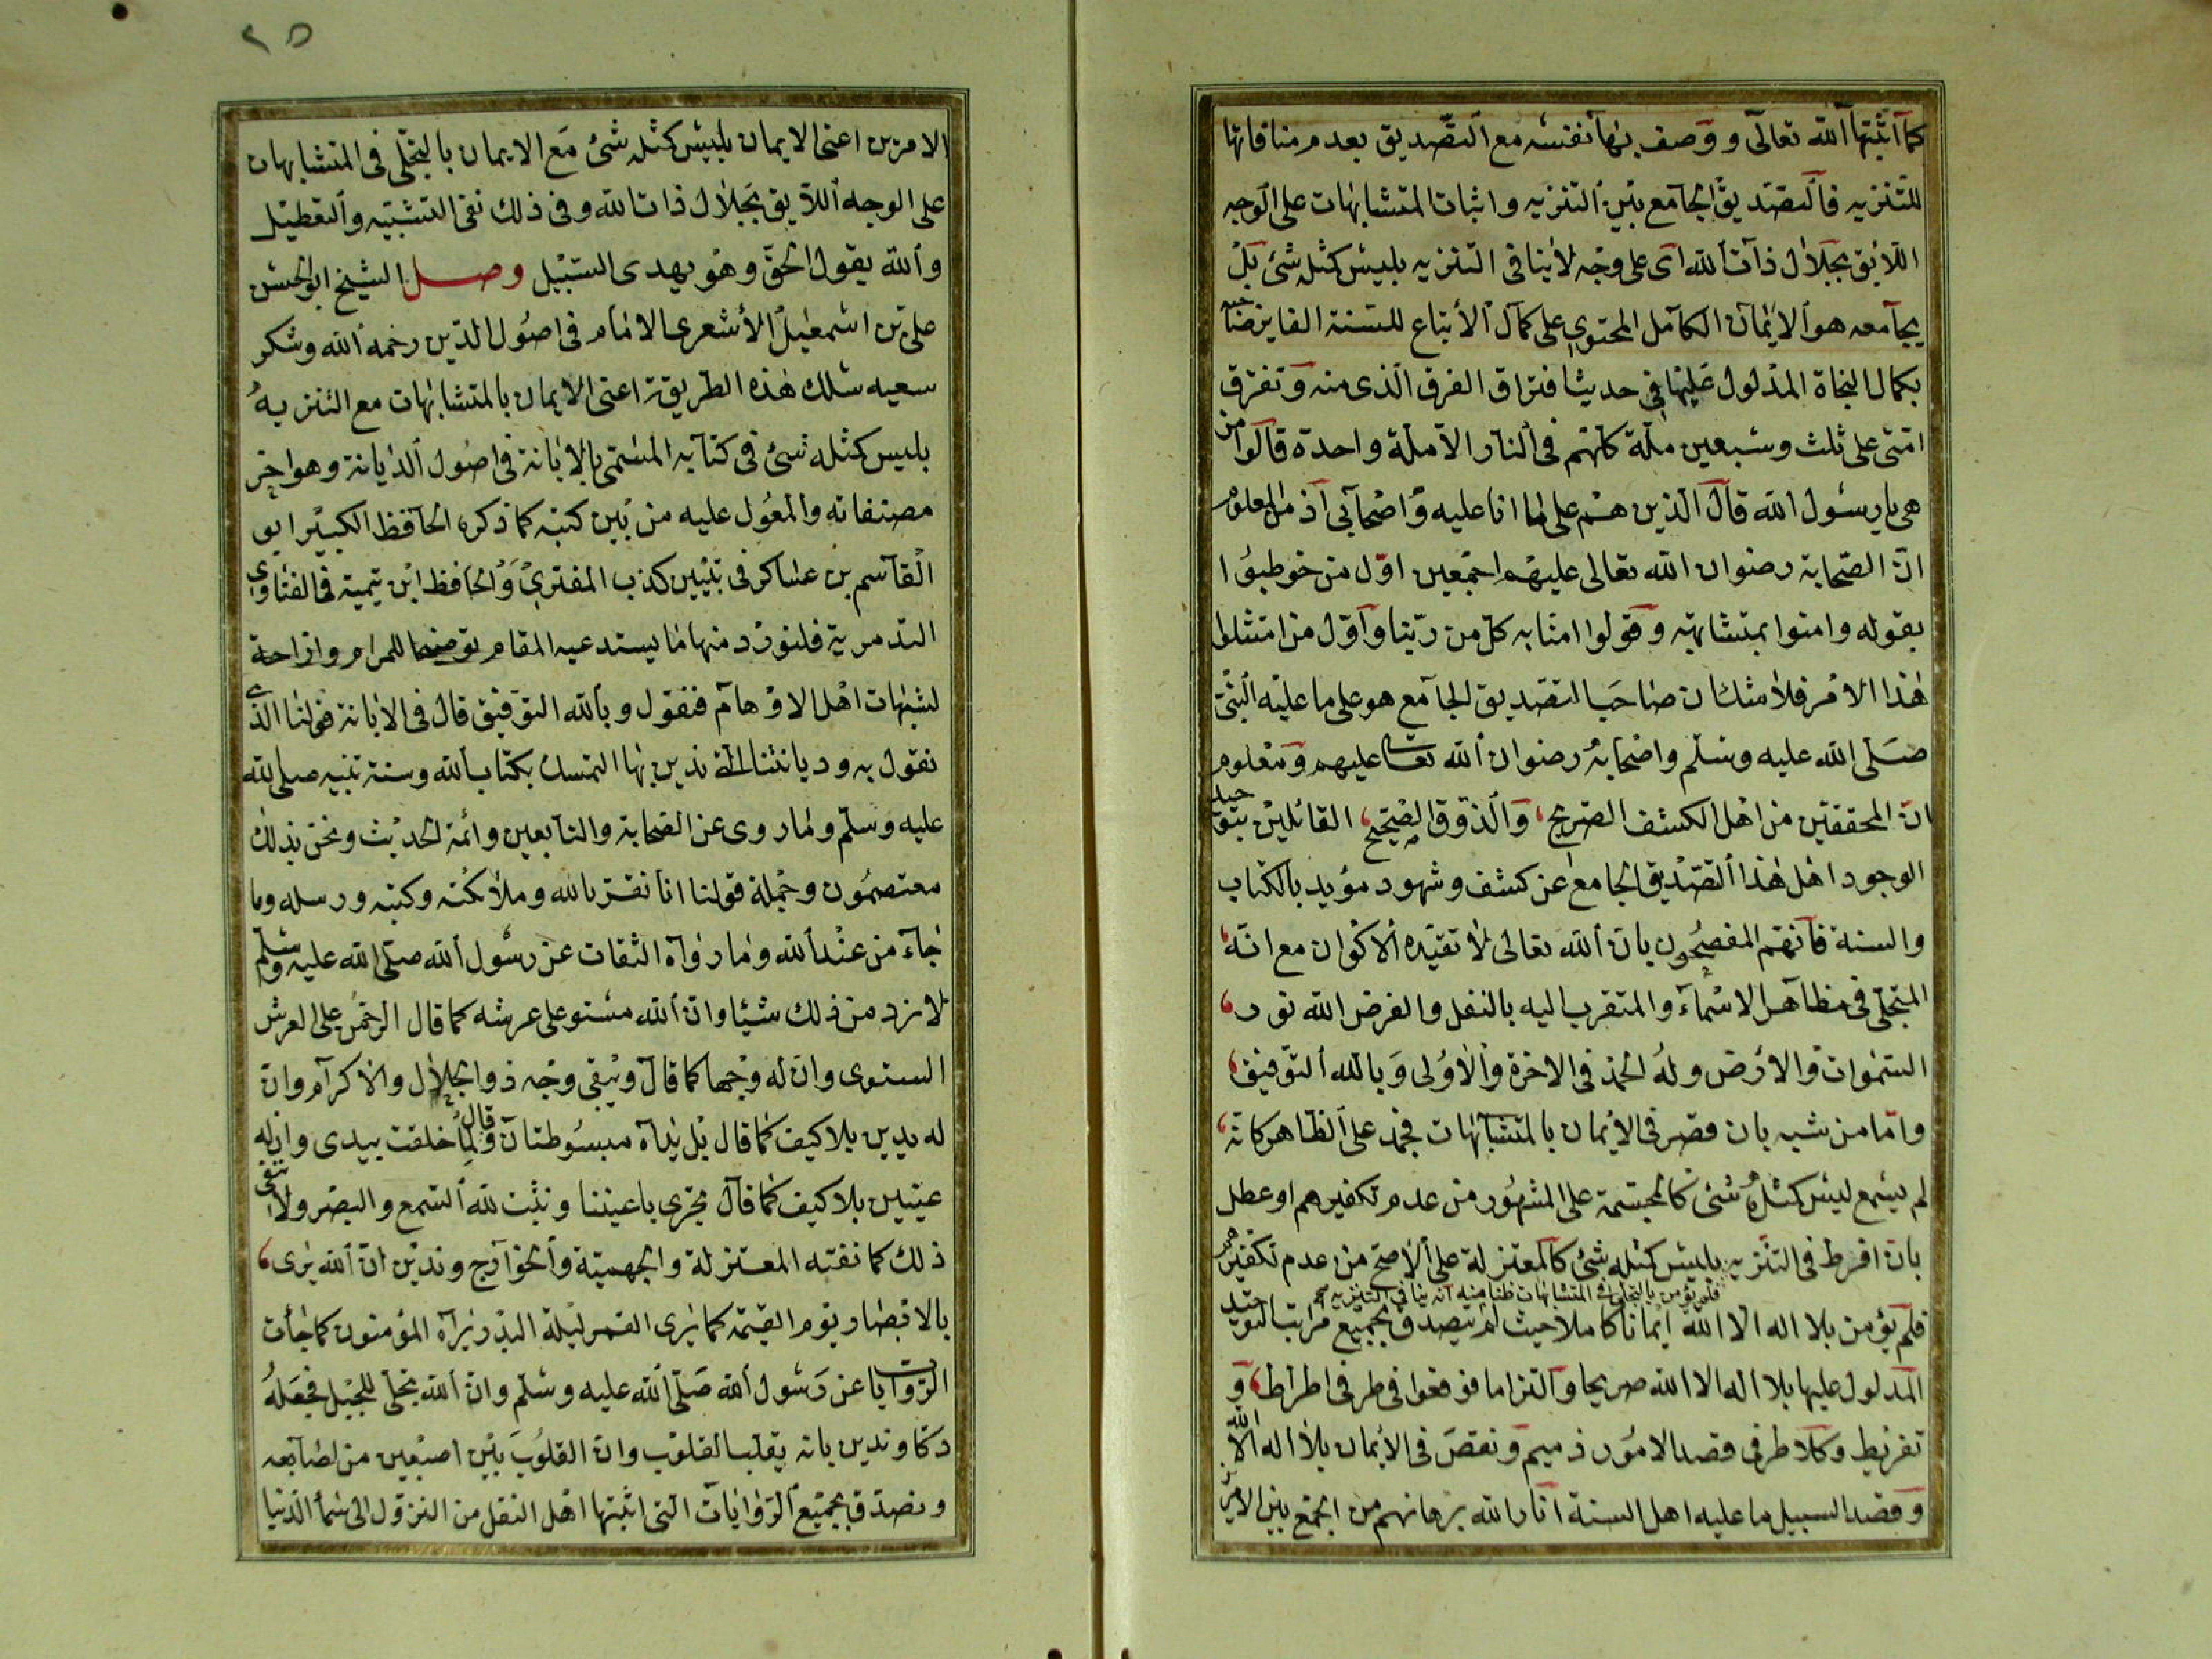 كما اثبتها الله تعالى ووصف بها نفسه مع التصديق بعدم منافاتها
للتنزيه فالتصديق الجامع بين التنزيه واثبات المتشابهات على الوجه
اللايق بجلال ذات الله اى على وجه لا ينافى التنزيه بليس كمثله شئ بل
يجامعه هو الايمان الكامل المحتوى على كمال الاتباع للسنة الفايز صاحبه
بكمال النجاة المدلول عليها فى حديث افتراق الفرق الذى منه وتفترق
امتى على ثلث وسبعين ملة كلهم فى النار الا ملة واحدة قالوا من
هى يا رسول الله قال الذين هم على ما انا عليه واصحابى اذ من المعلوم
ان الصحابة رضوان الله تعالى عليهم اجمعين اول من خوطبوا
بقوله وامنوا بمتشابهه وقولوا امنا به كل من ربنا واول من امتثلوا
هذا الامر فلا شك ان صاحب التصديق الجامع هو على ما عليه النبى
صلى الله عليه وسلم واصحابه رضوان الله تعا عليهم ومعلوم
ان المحققين من اهل الكشف الصريح، والذوق الصحيح، القائلين بتوحيد
الوجود اهل هذا التصديق الجامع عن كشف وشهود مؤيد بالكتاب
والسنة فانهم المفصحون بان الله تعالى لا تقيده الاكوان مع انه،
المتجلى فى مظاهر الاسماء والمتقرب اليه بالنفل والفرض الله نور،
السموات والارض وله الحمد فى الاخرة والاولى وبالله التوفيق،
واما من شبه بان قصر فى الايمان بالمتشابهات فجمد على الظاهر كانه،
لم يسمع ليس كمثله شئ كالمجسمة على المشهور من عدم تكفيرهم او عطل
بان افرط فى التنزيه بليس كمثله شئ كالمعتزلة على الاصح من عدم تكفيرهم
فلم يؤمن بالتجلى فى المتشابهات ظنا منه انه ينافى التنزيه صح
فلم يؤمن بلا اله الا الله ايمانا كاملا حيث لم يصدق بجميع مراتب التوحيد
المدلول عليها بلا اله الا الله صريحا والتزاما فوقعوا فى طرفى افراط، و
تفريط وكلا طرفى قصد الامور ذميم ونقص فى الايمان بلا اله الا الله
وقصد السبيل ما عليه اهل السنة انار الله برهانهم من الجمع بين الامرين
٢٥
الامرين اعنى الايمان بليس كمثله شئ مع الايمان بالتجلى فى المتشابهات
على الوجه اللايق بجلال ذات الله وفى ذلك نفى التشبيه والتعطيل
والله يقول الحق وهو يهدى السبيل وصل الشيخ ابو الحسن
على بن اسمعيل الاشعرى الامام فى اصول الدين رحمه الله وشكر
سعيه سلك هذه الطريقة اعنى الايمان بالمتشابهات مع التنزيه
بليس كمثله شئ فى كتابه المسمى بالابانة فى اصول الديانة وهو اخر
مصنفاته والمعول عليه من بين كتبه كما ذكره الحافظ الكبير ابو
القاسم بن عساكر فى تبيين كذب المفترى والحافظ ابن تيمية فى الفتاوى
التدمرية فلنورد منها ما يستدعيه المقام توضيحا للمرام وازاحة
لشبهات اهل الاوهام فنقول وبالله التوفيق قال فى الابانة قولنا الذى
نقول به وديانتنا التى ندين بها التمسك بكتاب الله وسنة نبيه صلى الله
عليه وسلم وما روى عن الصحابة والتابعين وائمة الحديث ونحن بذلك
معتصمون وجملة قولنا انا نقر بالله وملائكته وكتبه ورسله وما
جاء من عند الله وما رواه الثقات عن رسول الله صلى الله عليه وسلم
لا نرد من ذلك شيئا وان الله مستو على عرشه كما قال الرحمن على العرش
استوى وان له وجها كما قال ويبقى وجه ذو الجلال والاكرام وان
له يدين بلا كيف كما قال بل يداه مبسوطتان وقال لما خلقت بيدى وان له
عينين بلا كيف كما قال تجرى باعيننا ونثبت لله السمع والبصر ولا ننفى
ذلك كما نفته المعتزلة والجهمية والخوارج وندين ان الله يرى،
بالابصار يوم القيمة كما يرى القمر ليلة البدر يراه المؤمنون كما جأت
الروايات عن رسول الله صلى الله عليه وسلم وان الله تجلى للجبل فجعله
دكا وندين بانه يقلب القلوب وان القلوب بين اصبعين من اصابعه
ونصدق بجميع الروايات التى اثبتها اهل النقل من النزول الى سماء الدنيا